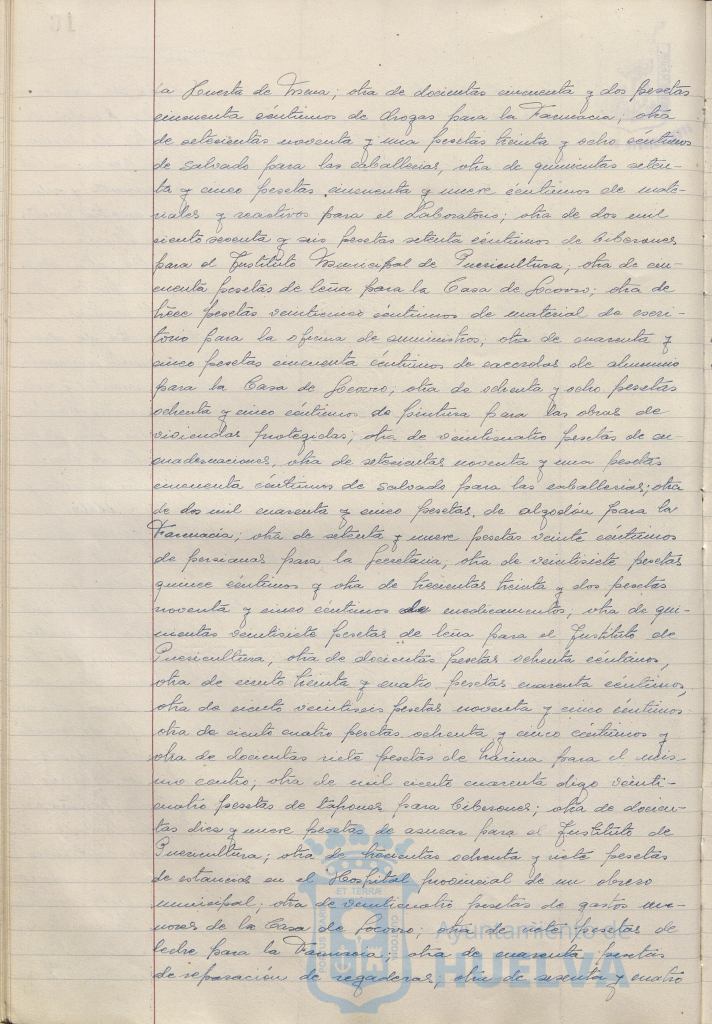 la Huerta de Mena; otra de docientas cincuenta y dos pesetas
cincuenta céntimos de drogas para la Farmacia; otra
de setecientas noventa y una pesetas treinta y ocho céntimos
de salvado para las caballerias, otra de quinientas seten-
ta y cinco pesetas cincuenta y nueve céntimos de mate-
riales y reactivos para el Laboratorio; otra de dos mil
ciento sesenta y seis pesetas setenta céntimos de biberones
para el Instituto Municipal de Puericultura; otra de cin-
cuenta pesetas de leña para la Casa de Socorro; otra de
trece pesetas veinticinco céntimos de material de escri-
torio para la oficina de suministros; otra de cuarenta y
cinco pesetas cincuenta céntimos de cacerolas de aluminio
para la Casa de Socorro; otra de ochenta y ocho pesetas
ochenta y cinco céntimos de pintura para las obras de
viviendas protegidas; otra de veinticuatro pesetas de en-
cuadernaciones, otra de setecientas noventa y una pesetas
cincuenta céntimos de salvado para las caballerias; otra
de dos mil cuarenta y cinco pesetas de algodón para la
Farmacia; otra de setenta y nueve pesetas veinte céntimos
de persianas para la Secretaria, otra de veintisiete pesetas
quince céntimos y otra de trecientas treinta y dos pesetas
noventa y cinco céntimos de medicamentos; otra de qui-
nientas veintisiete pesetas de leña para el Instituto de
Puericultura, otra de docientas pesetas ochenta céntimos,
otra de ciento treinta y cuatro pesetas cuarenta céntimos,
otra de ciento veintiseis pesetas noventa y cinco céntimos
otra de ciento cuatro pesetas ochenta y cinco céntimos y
otra de docientas siete pesetas de harina para el mis-
mo centro; otra de mil ciento cuarenta digo veinti-
cuatro pesetas de tapones para biberones; otra de docien-
tas diez y nueve pesetas de azucar para el Instituto de
Puericultura; otra de trecientas ochenta y siete pesetas
de estancias en el Hospital provincial de un obrero
municipal; otra de veinticuatro pesetas de gastos me-
nores de la Casa de Socorro; otra de siete pesetas de
leche para la Farmacia; otra de cuarenta pesetas
de reparación de regaderas, otra de sesenta y cuatro
ET TERRÆ
PORTUS MARIS
CUSTODIA
Ayuntamiento de
HUELVA